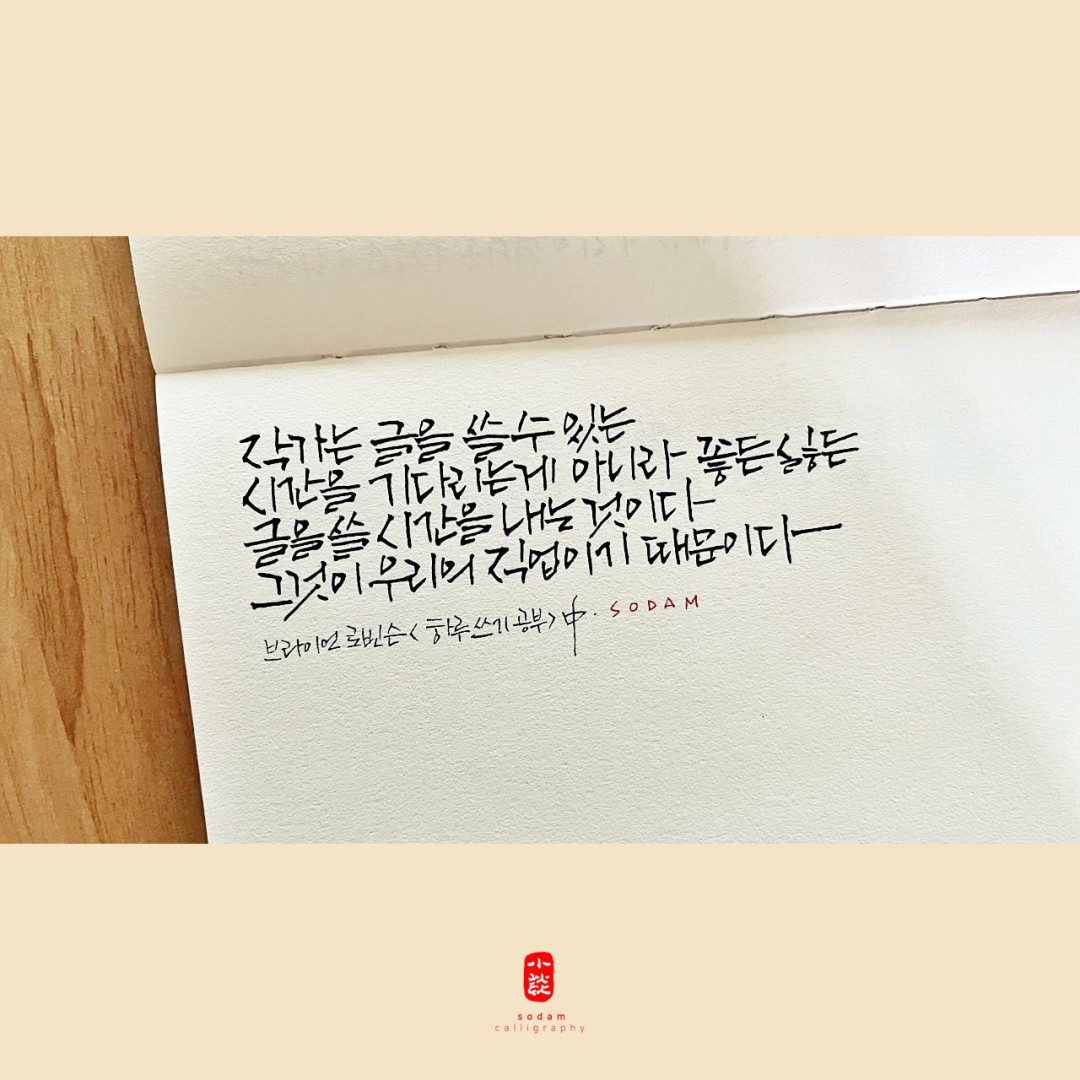 작가는 글을 쓸 수 있는
시간을 기다리는게 아니라 좋든 싫든
글을 쓸 시간을 내는 것이다
그것이 우리의 직업이기 때문이다
브라이언 로빈슨 <하루 쓰기 공부> 中. SODAM
小談
sodam
calligraphy